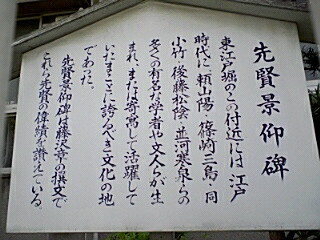 先賢景仰碑
東江戸堀のこの付近には、江戸
時代に、頼山陽・篠崎三島・同
小竹・後藤松陰・並河寒泉らの
多くの有名な学者や文人らが生
まれ、または寄寓して活躍して
いたまことに誇るべき文化の地
であった。
先賢景仰碑は藤沢章の撰文で
これら先賢の偉績を讃えている